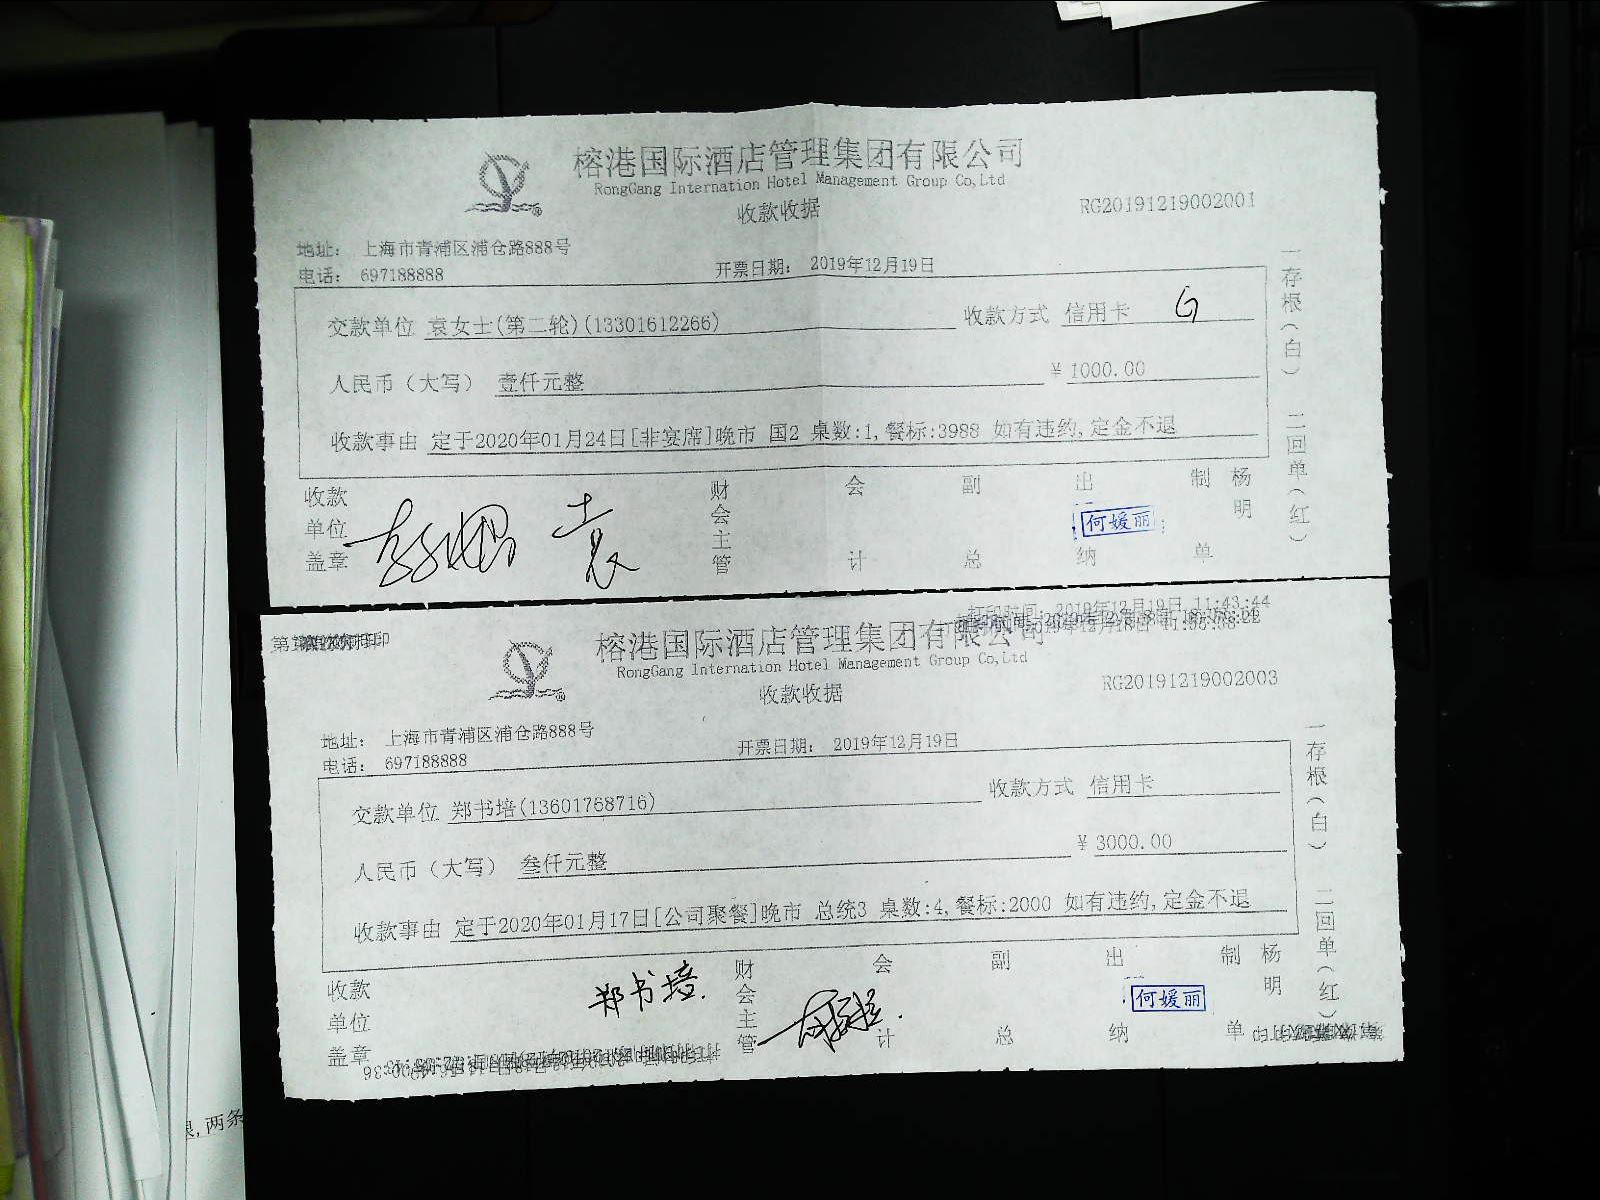 榕港国际酒店管理集团有限公司
RongGang Internation Hotel Management Group Co,Ltd
收款收据
RG20191219002001
地址： 上海市青浦区浦仓路888号
电话： 697188888
开票日期： 2019年12月19日
交款单位 袁女士(第二轮)(13301612266)
收款方式 信用卡
人民币（大写） 壹仟元整
¥ 1000.00
收款事由 定于2020年01月24日[非宴席]晚市 国2 桌数:1,餐标:3988 如有违约,定金不退
收款单位盖章
袁
财会主管
会计
副总
出纳
何媛丽
制单
杨明
一存根（白） 二回单（红）
打印时间：2019年12月19日 11:43:44
榕港国际酒店管理集团有限公司
RongGang Internation Hotel Management Group Co,Ltd
收款收据
RG20191219002003
地址： 上海市青浦区浦仓路888号
电话： 697188888
开票日期： 2019年12月19日
交款单位 郑书培(13601768716)
收款方式 信用卡
人民币（大写） 叁仟元整
¥ 3000.00
收款事由 定于2020年01月17日[公司聚餐]晚市 总统3 桌数:4,餐标:2000 如有违约,定金不退
收款单位盖章
郑书培.
财会主管
会计
副总
出纳
何媛丽
制单
杨明
一存根（白） 二回单（红）
,两条